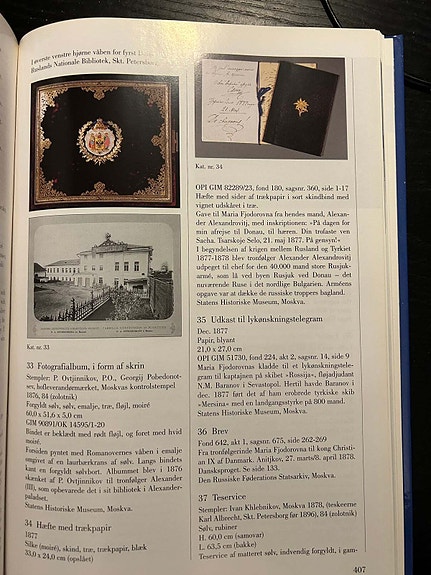 I øverste venstre hjørne våben for fyrst
Ruslands Nationale Bibliotek, Skt. Petersborg
Kat. nr. 33
33 Fotografialbum, i form af skrin
Stempler: P. Ovtjinnikov, P.O., Georgij Pobedonot-
sev, hofleverandørmærket, Moskvas kontrolstempel
1876, 84 (zolotnik)
Forgyldt sølv, sølv, emalje, træ, fløjl, moiré
60,0 x 51,6 x 5,0 cm
GIM 90891/OK 14595/1-20
Bindet er beklædt med rødt fløjl, og foret med hvid
moiré.
Forsiden pyntet med Romanovernes våben i emalje
omgivet af en laurbærkrans af sølv. Langs bindets
kant en forgyldt sølvbort. Albummet blev i 1876
skænket af P. Ovtjinnikov til tronfølger Alexander
(III), som opbevarede det i sit bibliotek i Alexander-
paladset.
Statens Historiske Museum, Moskva.
34 Hæfte med trækpapir
1877
Silke (moiré), skind, træ, trækpapir, blæk
33,0 x 24,0 cm (opslået)
Kat. nr. 34
OPI GIM 82289/23, fond 180, sagsnr. 360, side 1-17
Hæfte med sider af trækpapir i sort skindbind med
vignet udskåret i træ.
Gave til Maria Fjodorovna fra hendes mand, Alexan-
der Alexandrovitj, med inskriptionen: »På dagen for
min afrejse til Donau, til hæren. Din trofaste ven
Sacha. Tsarskoje Selo, 21. maj 1877. På gensyn!«
I begyndelsen af krigen mellem Rusland og Tyrkiet
1877-1878 blev tronfølger Alexander Alexandrovitj
udpeget til chef for den 40.000 mand store Rusjuk-
armé, som lå ved byen Rusjuk ved Donau – det
nuværende Ruse i det nordlige Bulgarien. Arméens
opgave var at dække de russiske troppers bagland.
Statens Historiske Museum, Moskva.
35 Udkast til lykønskningstelegram
Dec. 1877
Papir, blyant
21,0 x 27,0 cm
OPI GIM 51730, fond 224, akt 2, sagsnr. 14, side 9
Maria Fjodorovnas kladde til et lykønskningstele-
gram til kaptajnen på skibet »Rossija«, fløjadjudant
N.M. Baranov i Sevastopol. Hertil havde Baranov i
dec. 1877 ført det af ham erobrede tyrkiske skib
»Mersina« med en landgangsstyrke på 800 mand.
Statens Historiske Museum, Moskva.
36 Brev
Fond 642, akt 1, sagsnr. 675, side 262-269
Fra tronfølgerinde Maria Fjodorovna til kong Christi-
an IX af Danmark. Anitjkov, 27. marts/8. april 1878.
Dansksproget. Se side 133.
Den Russiske Føderations Statsarkiv, Moskva.
37 Teservice
Stempler: Ivan Khlebnikov, Moskva 1878, (teskeerne
Karl Albrecht, Skt. Petersborg før 1896), 84 (zolotnik)
Sølv, rubiner
H. 60,0 cm (samovar)
L. 63,5 cm (bakke)
Teservice af matteret sølv, indvendig forgyldt, i gam-
407